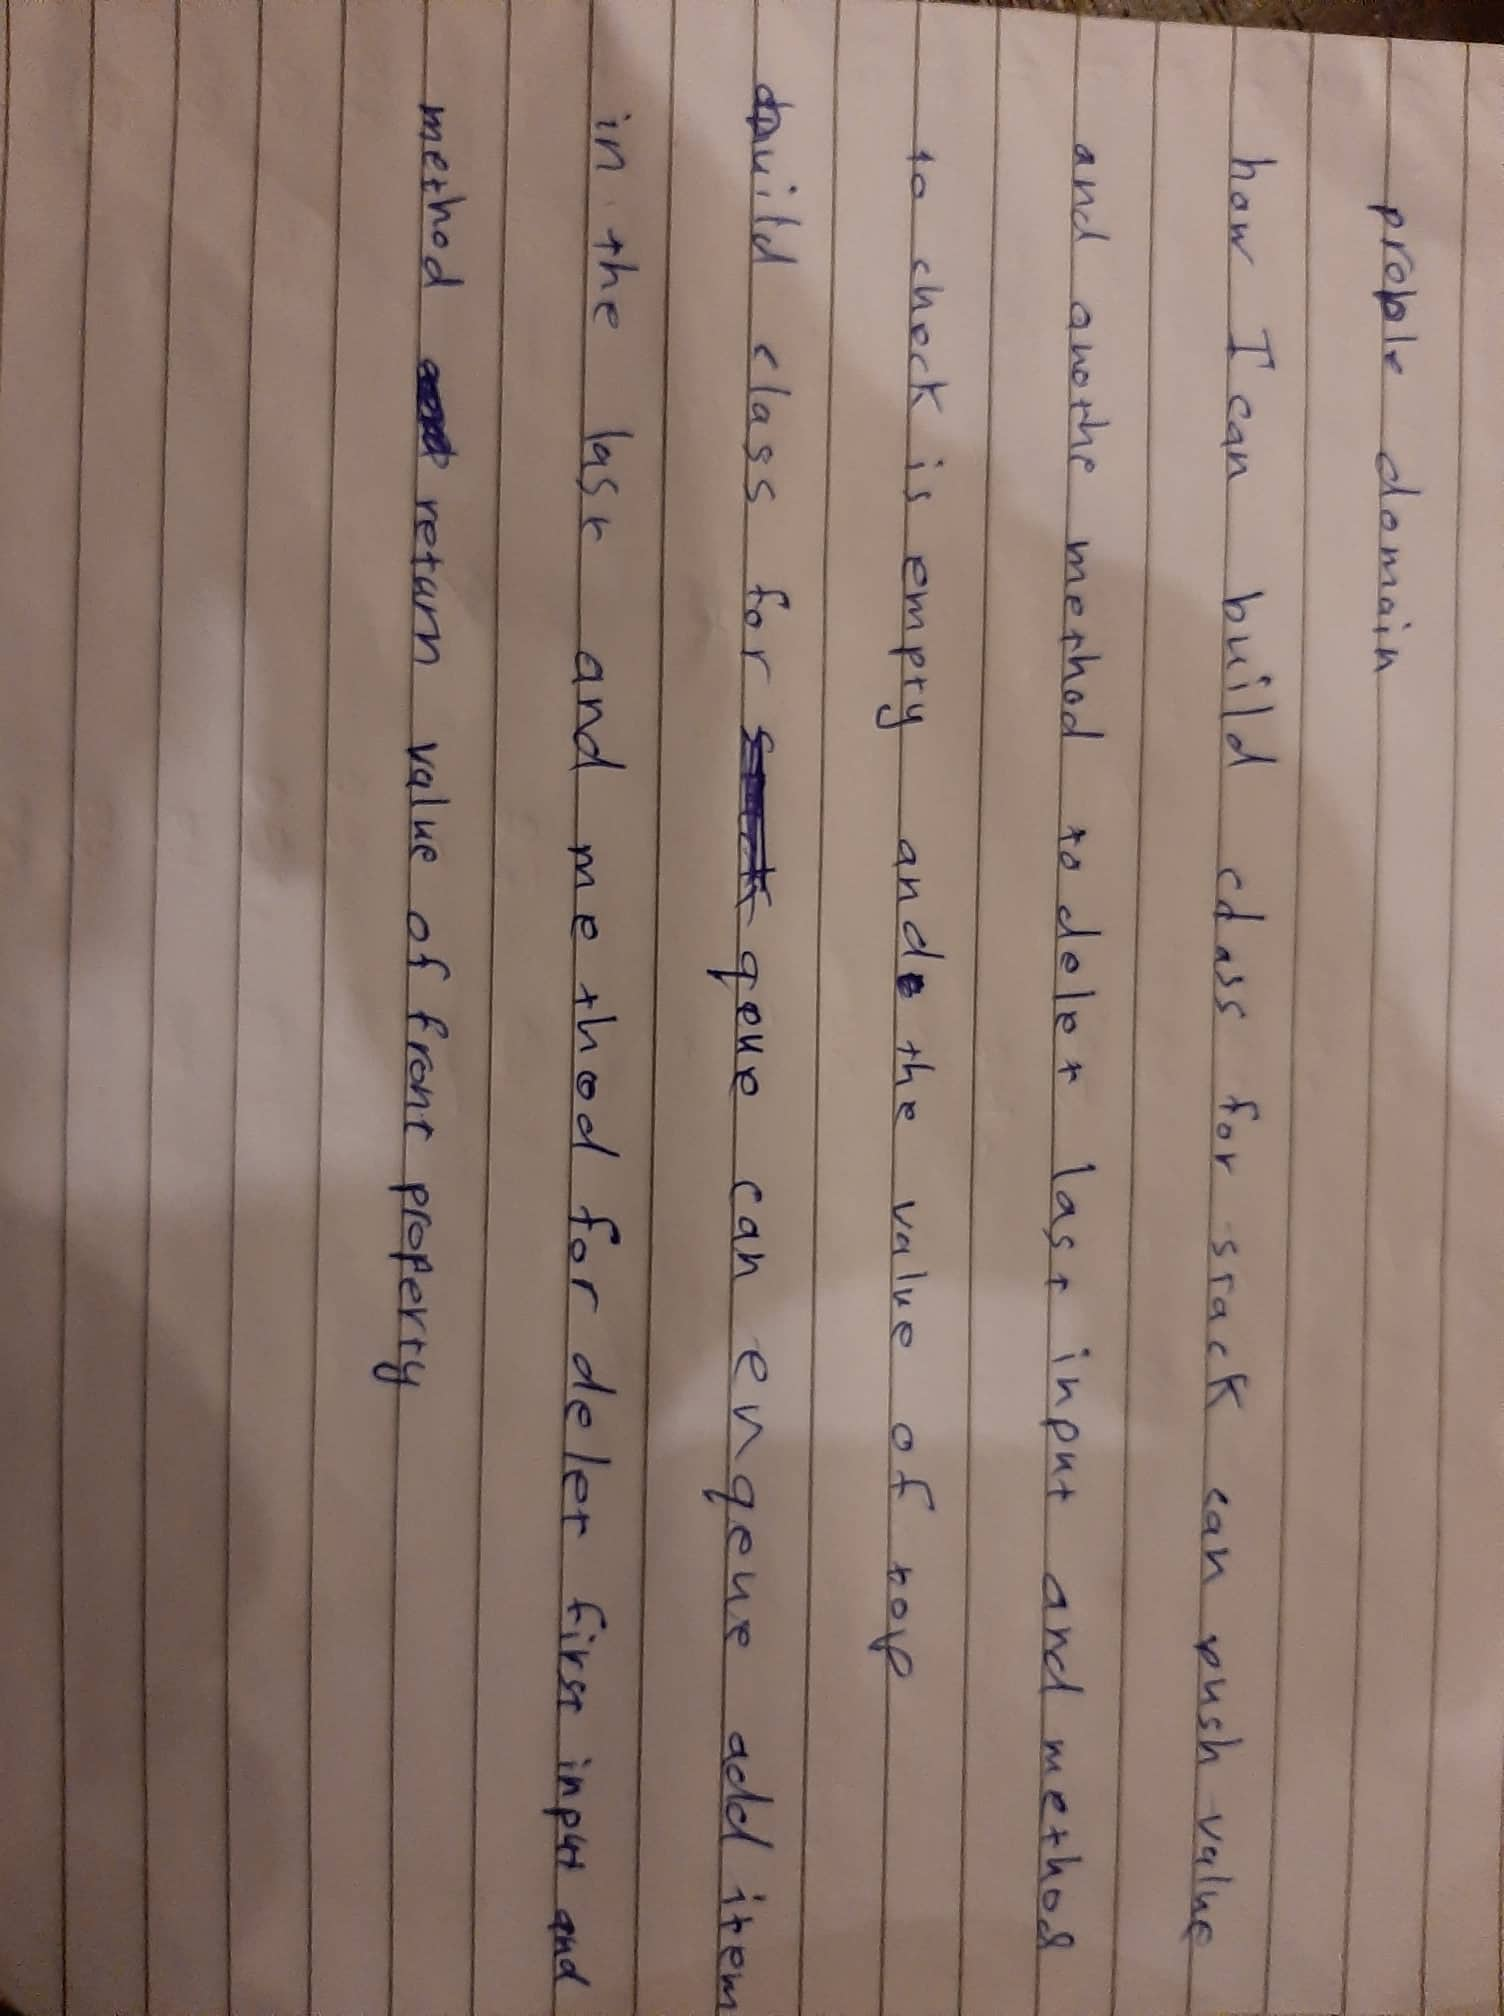 prople domain
how I can build cdass for stack can push value
and anothe method to delet last input and method
to check is empty and the value of top
build class for qeue can enqeue add item
in the last and method for delet first input and
method return value of front property